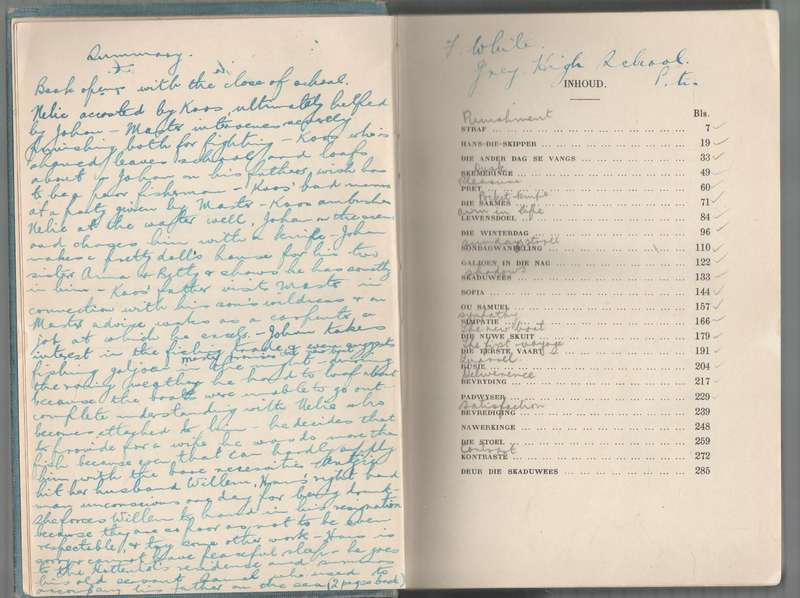 Summary.
Book opens with the close of school.
Nelie accosted by Koos, ultimately helped
by Johan – Master intervenes severely
punishing both for fighting – Koos who is
annoyed leaves school and loafs
about – Johan on his father's wish has
to be a poor fisherman – Koos' bad manners
at a party given by Master – Koos ambushes
Nelie at the water well. Johan on the scene
and charges him with a knife – Johan
makes a pretty doll's house for his two
sister Anna & Betty & shows he has society
in him – Koos' father visits Master in
connection with his son's wildness & on
Master advise works as a carpenter a
job at which he excels. – Johan takes
interest in the fishing trade & even suggests
fishing galjoen
the rainy weather he had to loaf about
because the boats were unable to go out
complete understanding with Nelie who
becomes attached to him – he decides that
to provide for a wife he was do more than
fish because even that can hardly supply
him with the bare necessities –
hit her husband Willem, Hans's right hand
man unconscious one day for being drunk
She forces Willem to hand in his resignation
because they are so poor as not to be even
respectable, & try some other work – Hans is
sorry & cannot have peaceful sleep – he goes
to the residence and summons
his old servant Samuel who used to
accompany his father on the sea (2 pages back)
F. White.
Grey High School.
P.E.
INHOUD.
Bls.
Punishment
STRAF ... 7
HANS-DIE-SKIPPER ... 19
DIE ANDER DAG SE VANGS ... 33
Dusk
SKEMERINGE ... 49
Pleasure
PRET ... 60
Pocket-knife
DIE SAKMES ... 71
Aim in life
LEWENSDOEL ... 84
DIE WINTERDAG ... 96
Sunday stroll
SONDAGWANDELING ... 110
GALJOEN IN DIE NAG ... 122
Shadows
SKADUWEES ... 133
SOFIA ... 144
OU SAMUEL ... 157
Sympathy
SIMPATIE ... 166
The new boat
DIE NUWE SKUIT ... 179
The first voyage
DIE EERSTE VAART ... 191
Quarrel
RUSIE ... 204
Deliverence
BEVRYDING ... 217
PADWYSER ... 229
Satisfaction
BEVREDIGING ... 239
NAWERKINGE ... 248
DIE STOEL ... 259
Contrast
KONTRASTE ... 272
DEUR DIE SKADUWEES ... 285